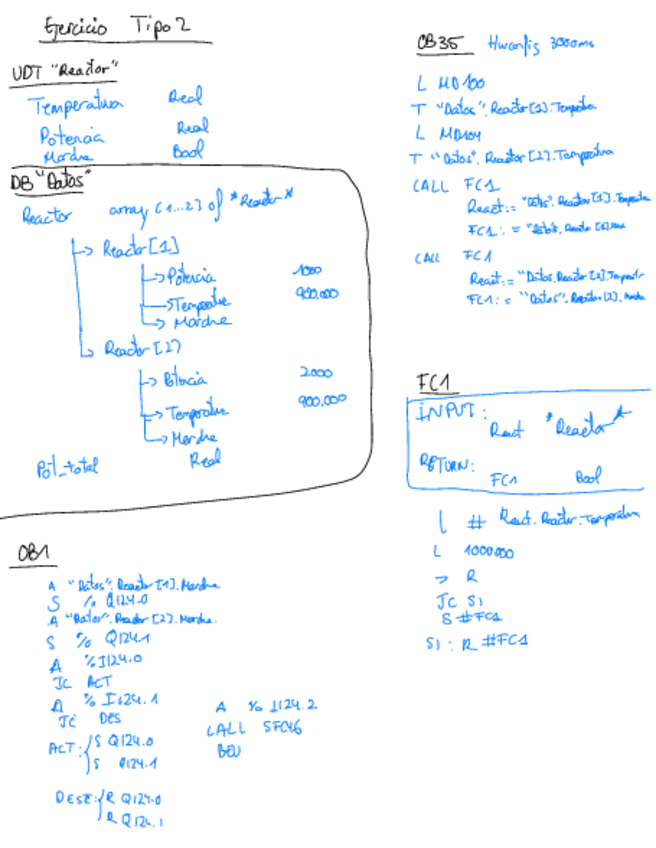 Ejercicio Tipo 2
UDT "Reactor"
Temperatura Real
Potencia Real
Marcha Bool
DB "Datos"
Reactor array [1...2] of "Reactor"
Reactor [1]
Potencia 1000
Temperatura 900.000
Marcha
Reactor [2]
Potencia 2000
Temperatura 900.000
Marcha
Pot_total Real
OB1
A "Datos".Reactor [1].Marcha
S % Q124.0
A "Datos".Reactor [2].Marcha.
S % Q124.1
A % I124.0
JC ACT
A % I124.1
JC DES
ACT: S Q124.0
S Q124.1
DESC: R Q124.0
R Q124.1
A % I124.2
CALL SFC46
BEU
OB35 Hwconfig 3000ms
L MD100
T "Datos".Reactor[1].Temperatura
L MD104
T "Datos".Reactor[2].Temperatura
CALL FC1
React:= "Datos".Reactor[1].Temperatura
FC1:= "Datos".Reactor[1].
CALL FC1
React:= "Datos.Reactor[2].
FC1:= "Datos".Reactor[2].Marcha
FC1
INPUT:
React "Reactor"
RETURN:
FC1 Bool
L # React.Reactor.Temperatura
L 1000000
> R
JC S1
S #FC1
S1: R #FC1